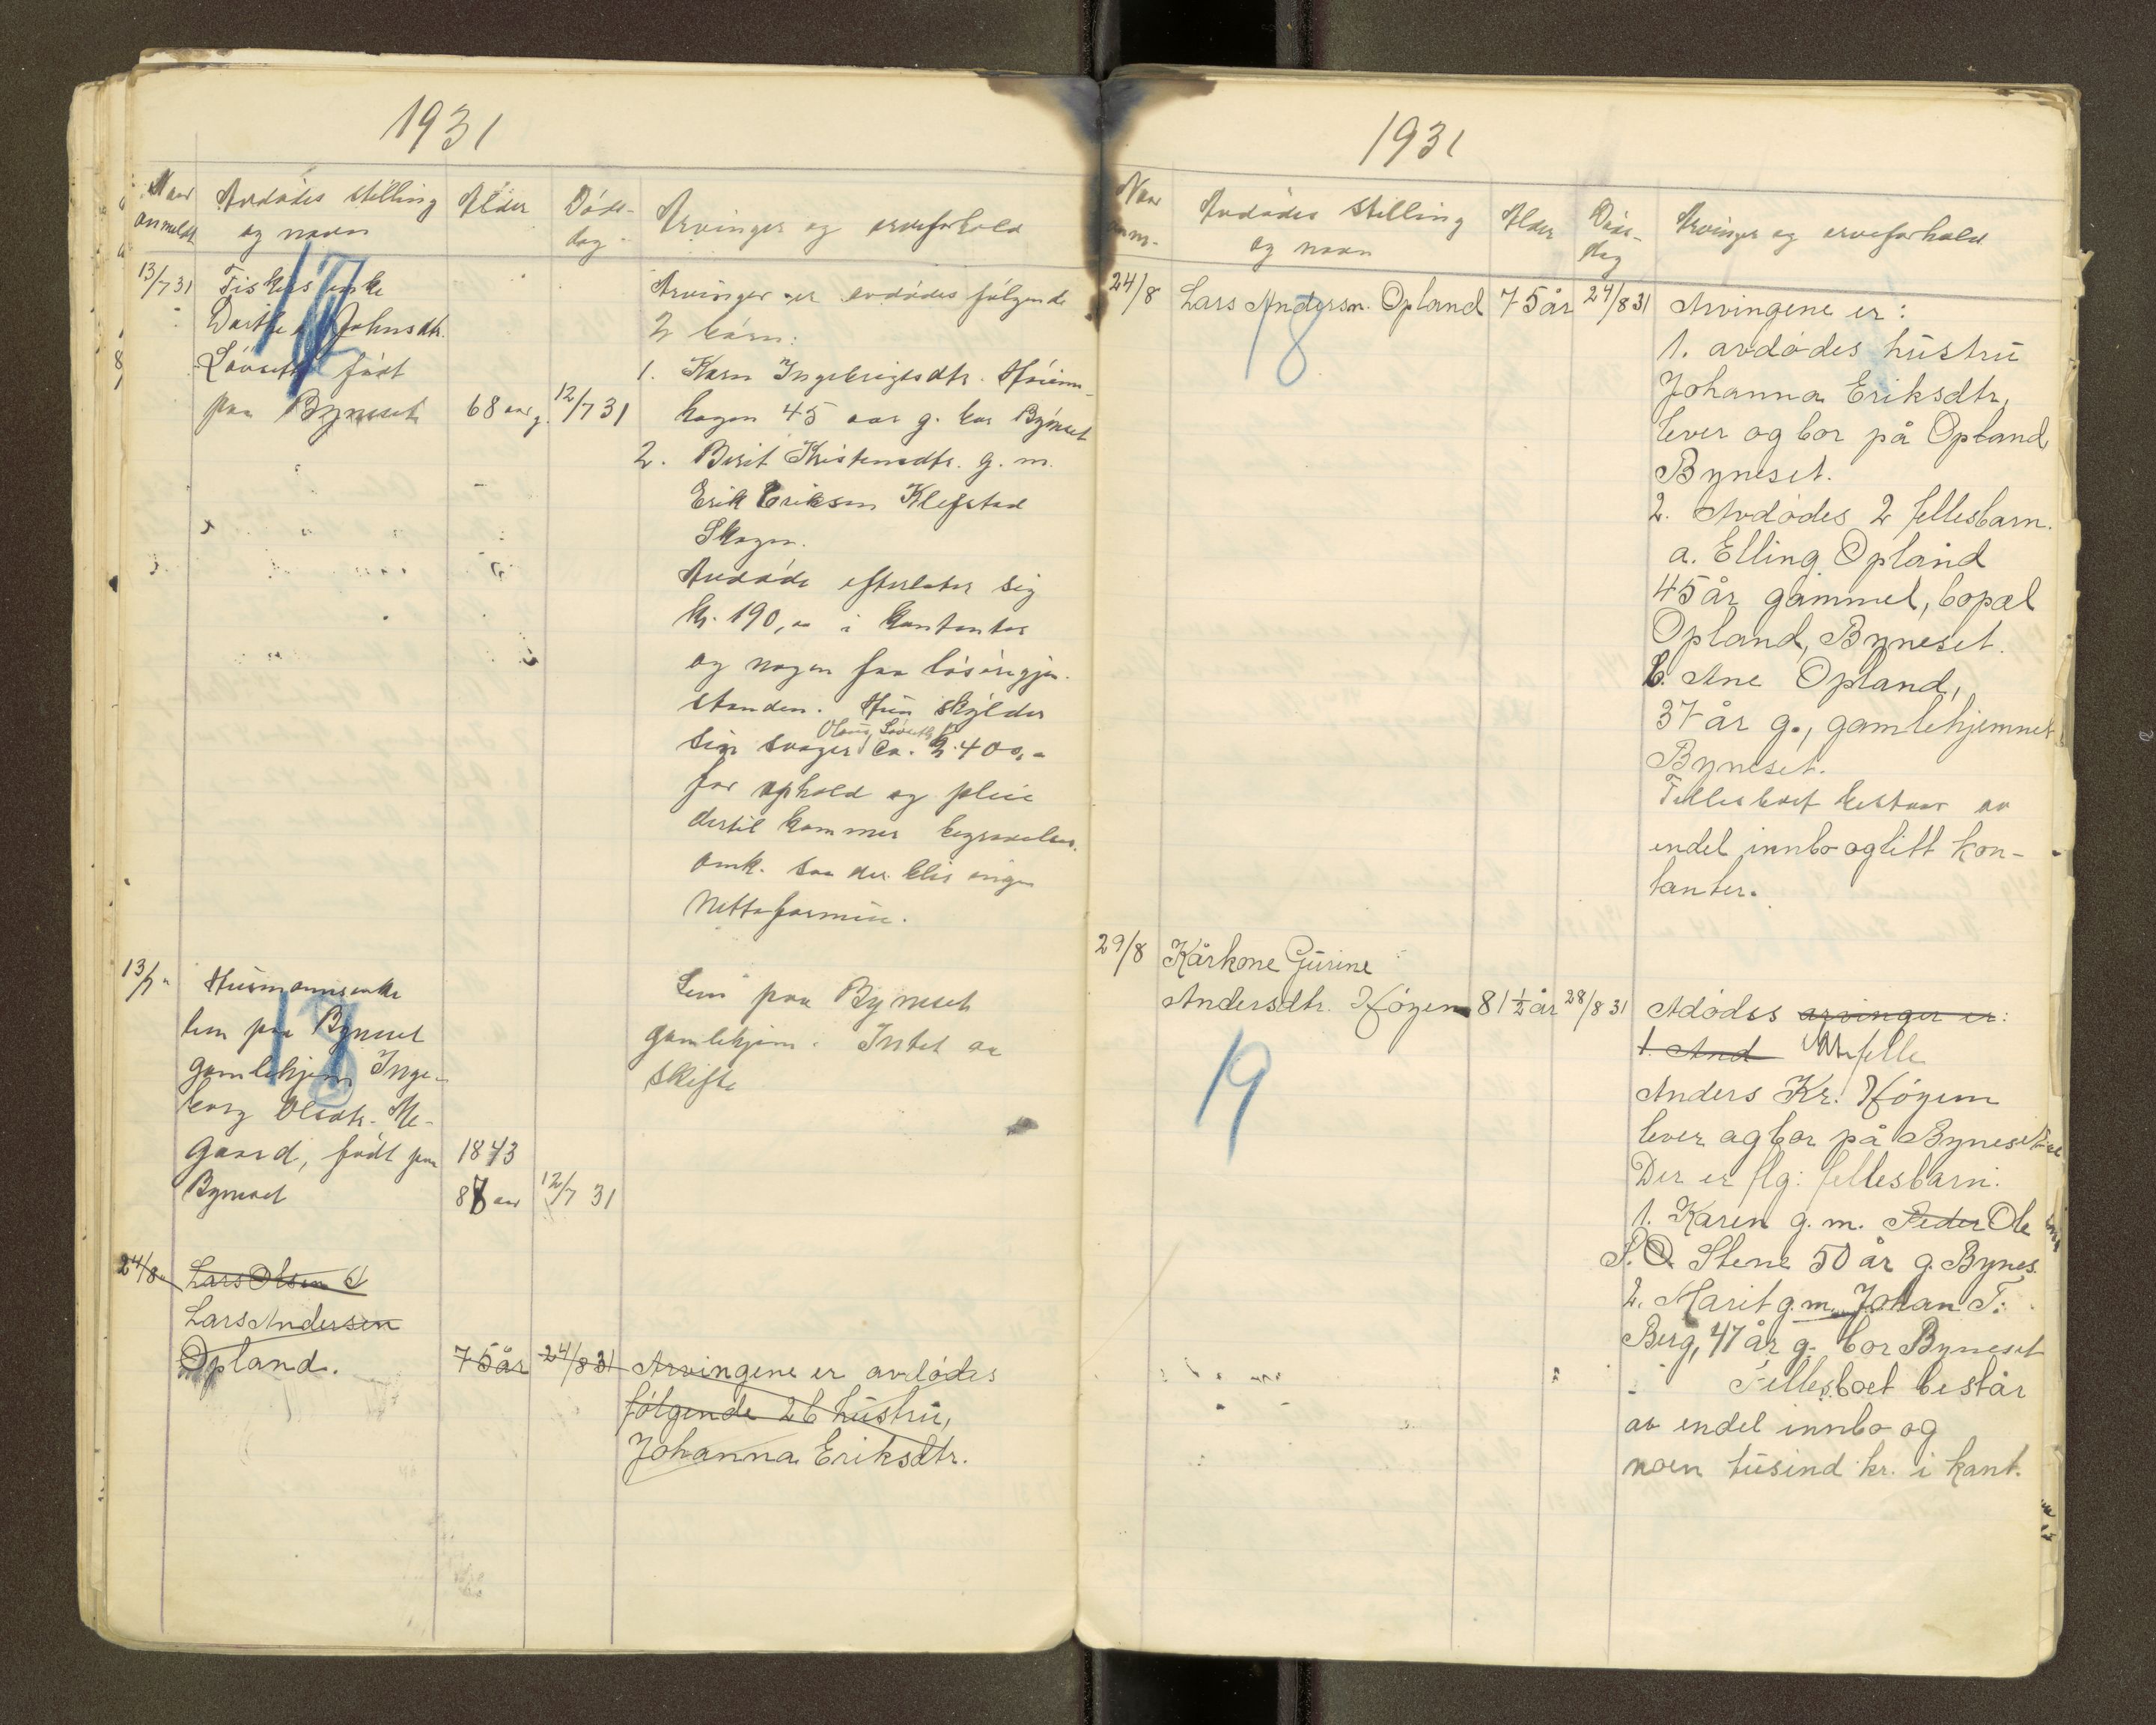 1931
Naar anmeldt
Avdødes stilling og navn
Alder
Døds-dag
Arvinger og arveforhold
13/7 31
Fiskers enke
Johnsdtr.
Løvseth født
paa Byneset
68 aar g.
12/7 31
17
Arvinger er avdødes følgende
2 barn:
1. Karn Ingebrigtsdtr.
hagen 45 aar g. bor Bynset
2. Berit Kristensdtr. g. m.
Erik Eriksen Klefstad
Skogn.
Avdøde efterlater sig
kr. 190,00 i kontanter
og nogen faa løsøregjen-
stander. Hun skylder
Olaus Løvseth
sin svoger ca. kr. 400,-
for ophold og pleie
dertil kommer begravelses-
omk. saa der blir ingen
Nettoformue.
13/7 "
Husmannsenke
lem paa Bynset
gamlehjem Inge-
borg Olsdtr. Me-
gaard, født paa
Byneset
1843
87 aar
12/7 31
18
Lem paa Byneset
gamlehjem. Intet at
skifte
24/8
Lars Olsen
Lars Andersen
Opland.
75 år
24/8 31
Arvingene er avdødes
følgende 2 b hustru,
Johanna Eriksdtr.
1931
Naar anm.
Avdødes stilling og navn
Alder
Døds-dag
Arvinger og arveforhold
24/8
Lars Andersen Opland
75 år
24/8 31
18
Arvingene er:
1. avdødes hustru
Johanna Eriksdtr,
lever og bor på Opland
Byneset.
2. Avdødes 2 fellesbarn.
a. Elling Opland
45 år gammel, bopæl
Opland, Byneset.
b. Ane Opland,
37 år g., gamlehjemmet
Byneset.
Fellesboet bestaar av
endel innbo og litt kon-
tanter.
29/8
Kårkone Gurine
Andersdtr. Høgem
81 1/2 år
28/8 31
19
Adødes arvinger er:
1. And
Anders Kr. Høgem
lever og bor på Byneset
Der er flg: fellesbarn:
1. Karen g. m. Peder Ole
P. O. Stene 50 år g. Bynes.
2. Marit g. m. Johan T.
Berg, 47 år g. bor Byneset
Fellesboet består
av endel innbo og
noen tusind kr. i kont.